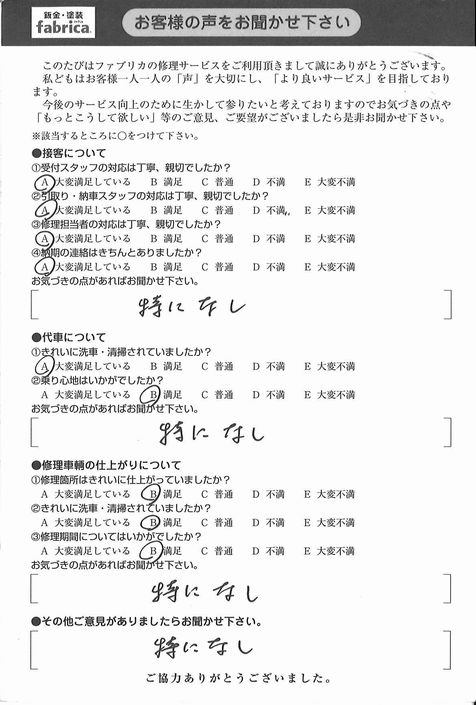 鈑金・塗装
fabrica.
お客様の声をお聞かせ下さい
このたびはファブリカの修理サービスをご利用頂きまして誠にありがとうございます。
私どもはお客様一人一人の「声」を大切にし、「より良いサービス」を目指しており
ます。
今後のサービス向上のために生かして参りたいと考えておりますのでお気づきの点や
「もっとこうして欲しい」等のご意見、ご要望がございましたら是非お聞かせ下さい。
※該当するところに○をつけて下さい。
●接客について
①受付スタッフの対応は丁寧、親切でしたか？
A 大変満足している B 満足 C 普通 D 不満 E 大変不満
②引取り・納車スタッフの対応は丁寧、親切でしたか？
A 大変満足している B 満足 C 普通 D 不満 E 大変不満
③修理担当者の対応は丁寧、親切でしたか？
A 大変満足している B 満足 C 普通 D 不満 E 大変不満
④納期の連絡はきちんとありましたか？
A 大変満足している B 満足 C 普通 D 不満 E 大変不満
お気づきの点があればお聞かせ下さい。
特になし
●代車について
①きれいに洗車・清掃されていましたか？
A 大変満足している B 満足 C 普通 D 不満 E 大変不満
②乗り心地はいかがでしたか？
A 大変満足している B 満足 C 普通 D 不満 E 大変不満
お気づきの点があればお聞かせ下さい。
特になし
●修理車輛の仕上がりについて
①修理箇所はきれいに仕上がっていましたか？
A 大変満足している B 満足 C 普通 D 不満 E 大変不満
②きれいに洗車・清掃されていましたか？
A 大変満足している B 満足 C 普通 D 不満 E 大変不満
③修理期間についてはいかがでしたか？
A 大変満足している B 満足 C 普通 D 不満 E 大変不満
お気づきの点があればお聞かせ下さい。
特になし
●その他ご意見がありましたらお聞かせ下さい。
特になし
ご協力ありがとうございました。